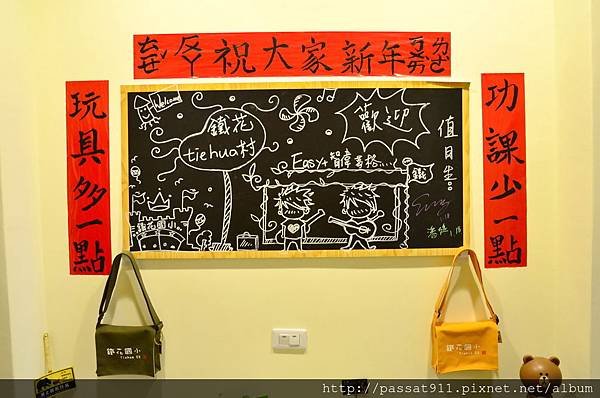 ㄊㄜˋ ㄅㄚ 祝大家新年
玩具多一點
功課少一點
Welcome
鐵花
tiehua村
歡迎
值日生:
Easy+
鐵
鐵花國小
鐵花國小
Tiehua ES
鐵花國小
Tiehua ES
http://passat911.pixnet.net/album